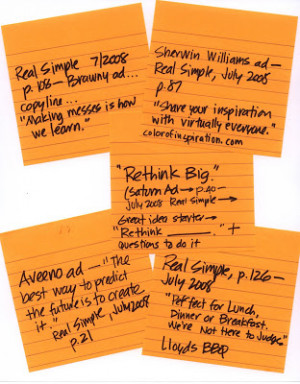 Real Simple 7/2008
p. 108— Brawny ad...
copyline...
"Making messes is how
we learn."
Sherwin Williams ad —
Real Simple, July 2008
p. 87
"Share your inspiration
with virtually everyone."
colorofinspiration.com
"Rethink Big."
(Saturn Ad → p.40—
July 2008 Real Simple →
Great idea starter →
"Rethink ______." +
questions to do it
Aveeno ad — "The
best way to predict
the future is to create
it."
Real Simple, July 2008
p. 21
Real Simple, p. 126—
July 2008
"Perfect for Lunch,
Dinner or Breakfast.
We're Not Here to Judge"
Lloyds BBQ